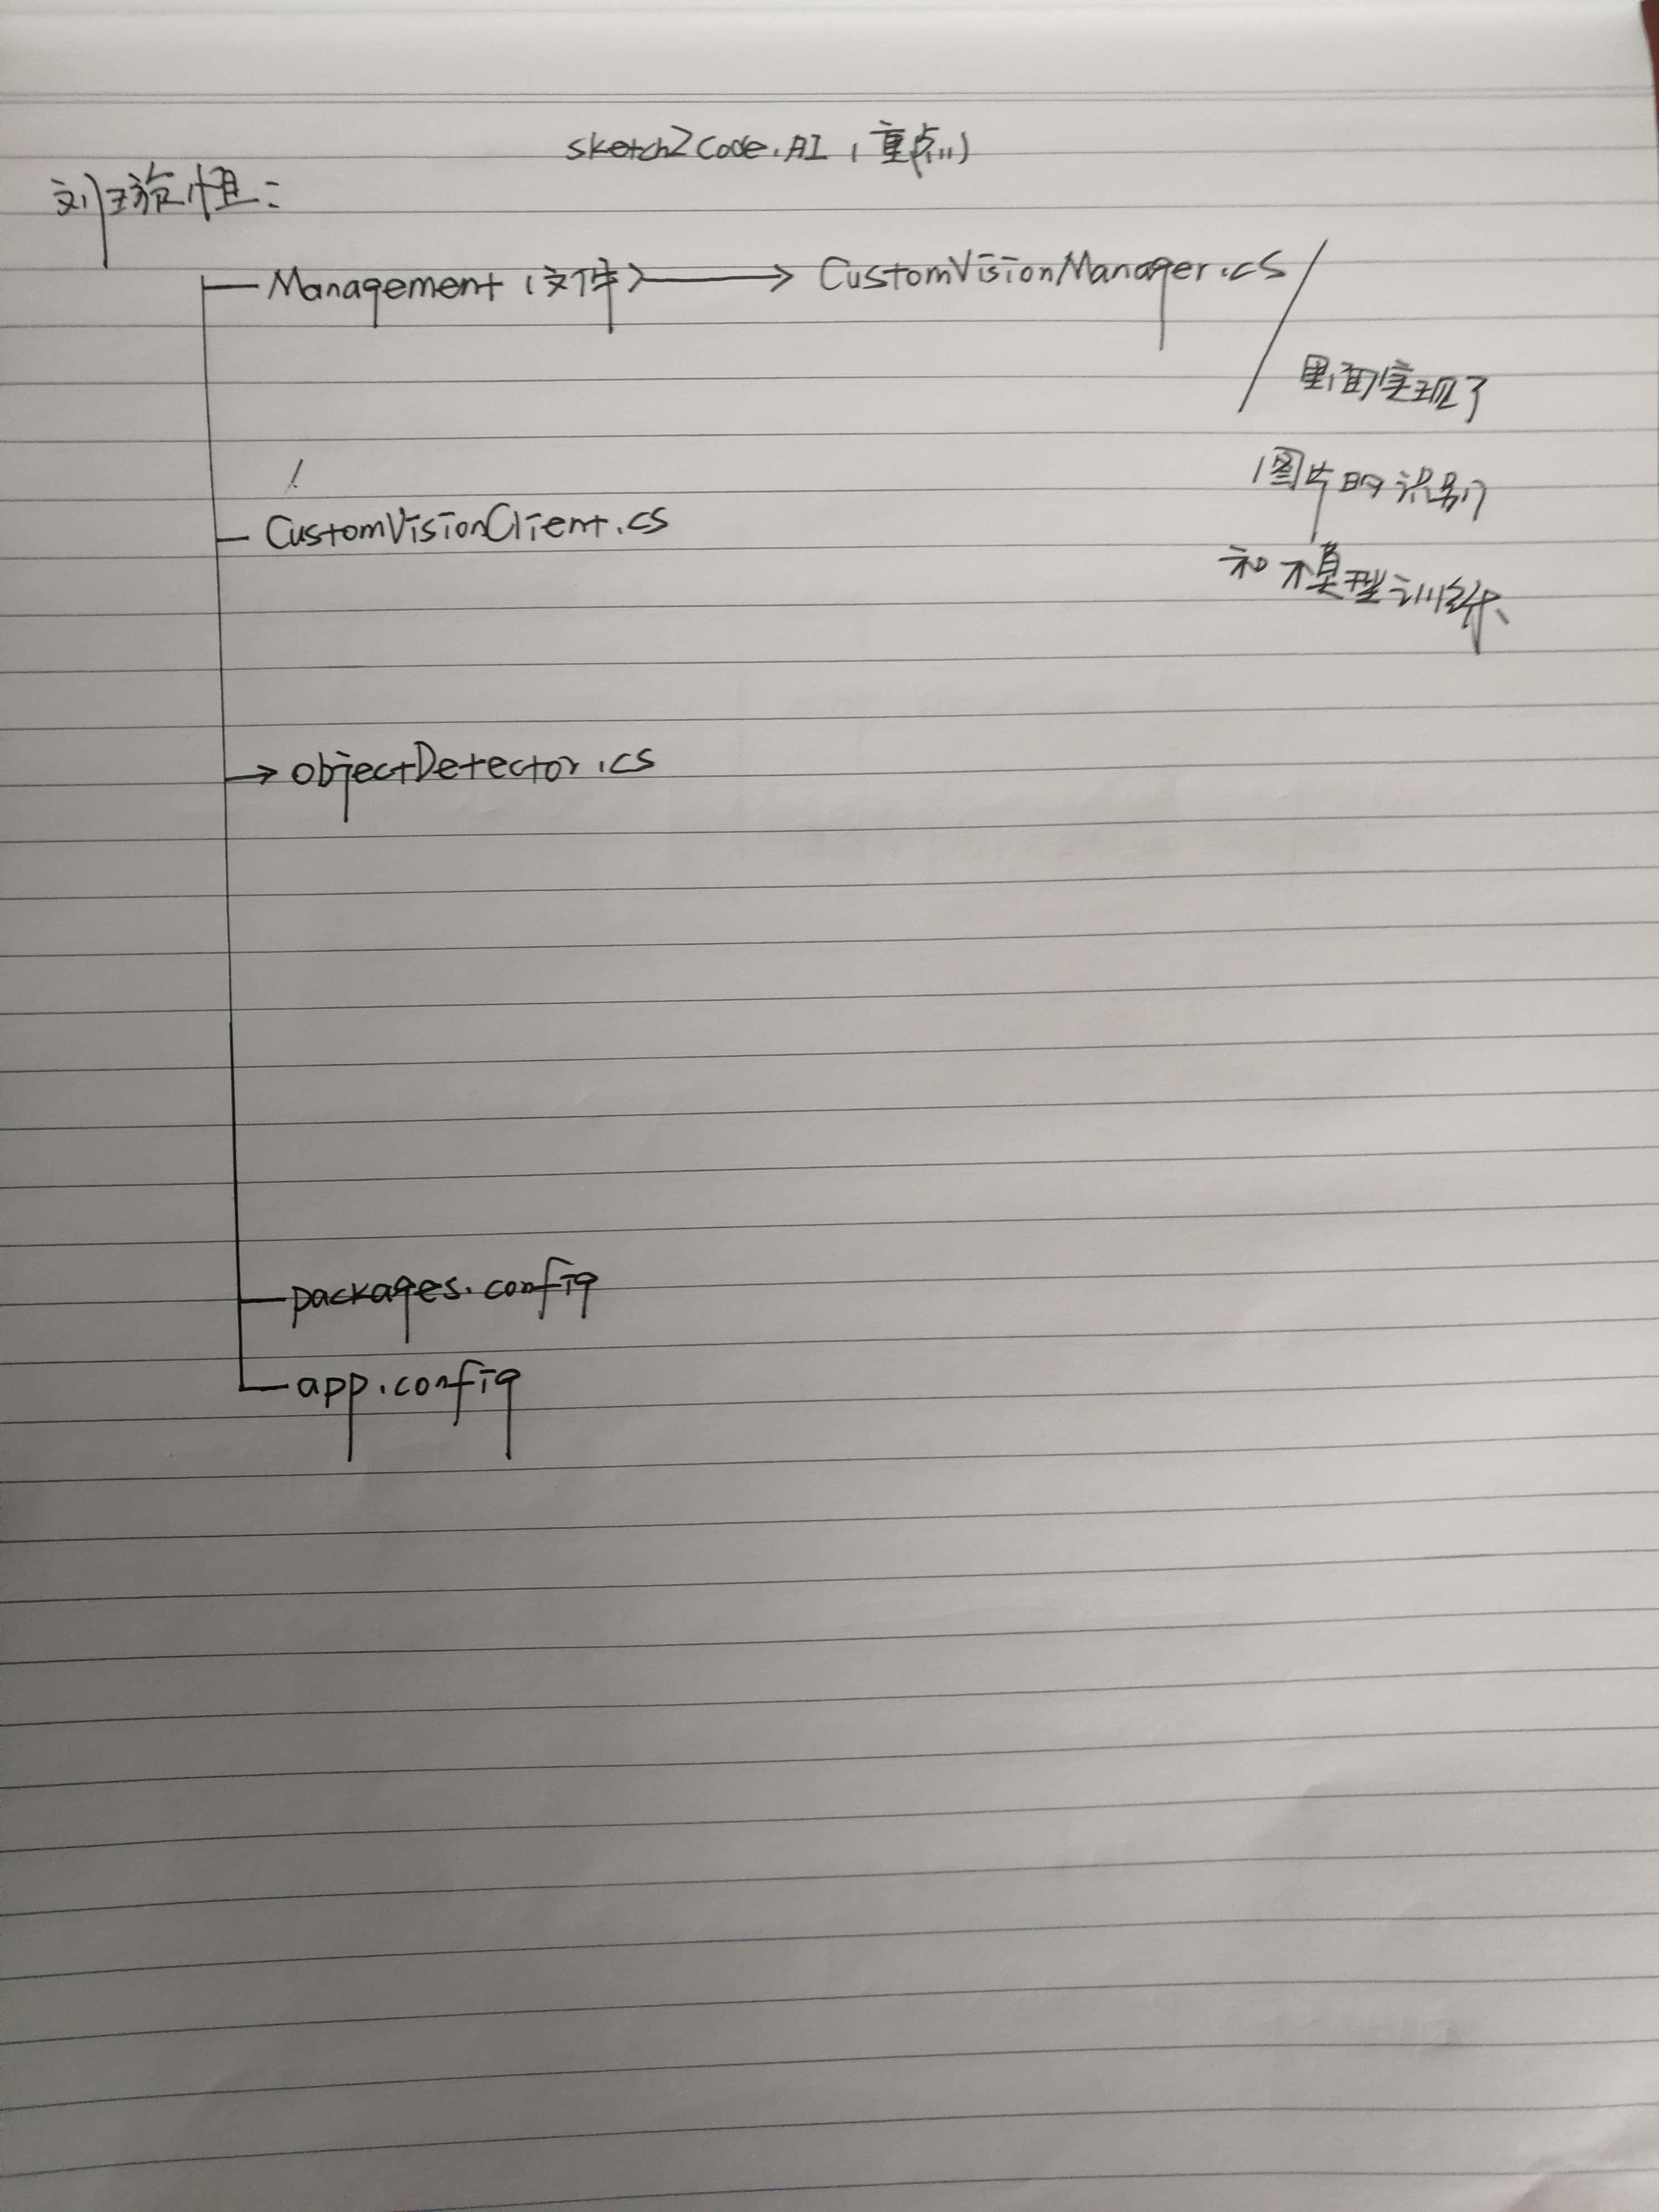 sketch2code.AI (重点!!!)
刘璇恒:
Management (文件) → CustomVisionManager.cs
里面实现了
图片的识别
和模型训练、
CustomVisionClient.cs
→ objectDetector.cs
packages.config
app.config